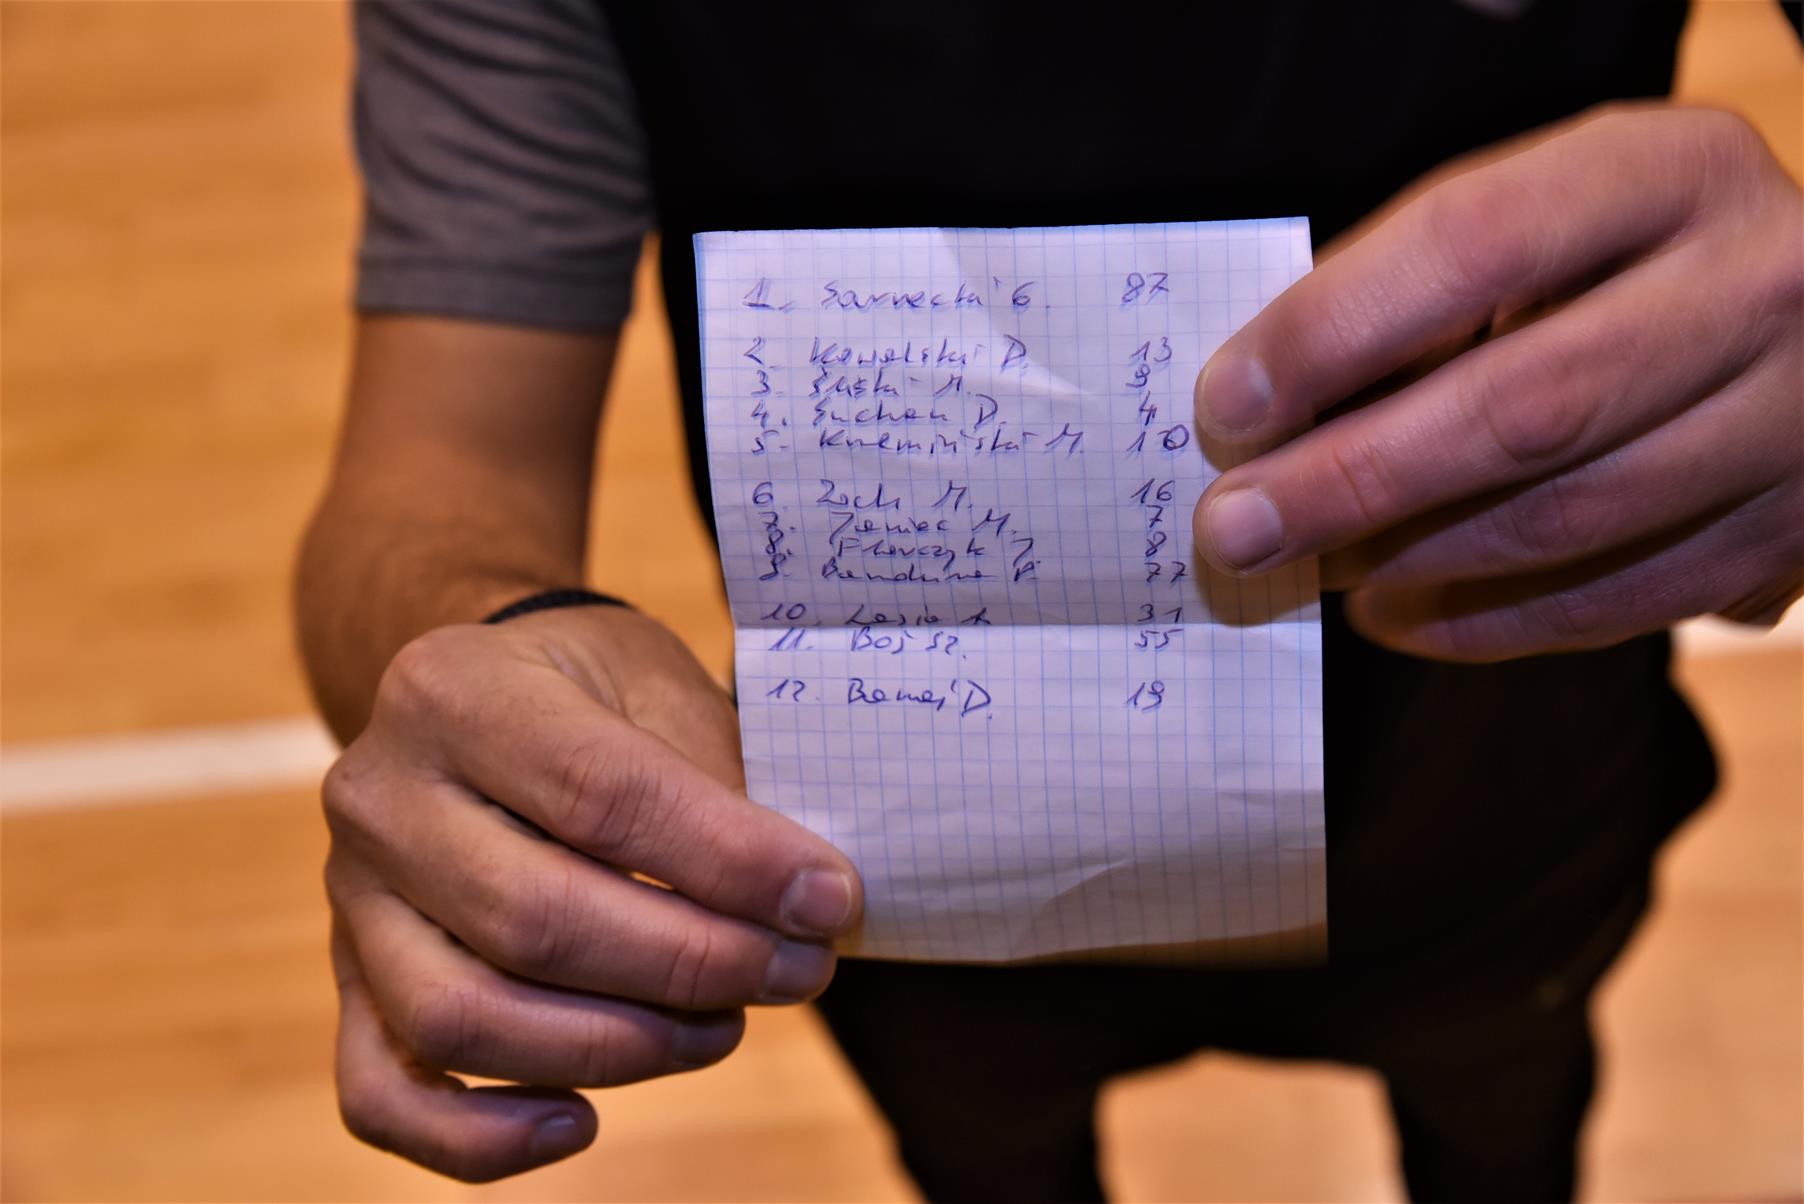 1. Sarnecki G. 87
2. Kowalski D. 13
3. Śliski M. 9
4. Suchan D. 4
5. Krzemiński M. 10
6. Zoch M. 16
7. Janiec M. 7
8. Florczyk J. 8
9. Bandura P. 77
10. Lasia A 31
11. Boś Sz. 55
12. Banaś D. 19